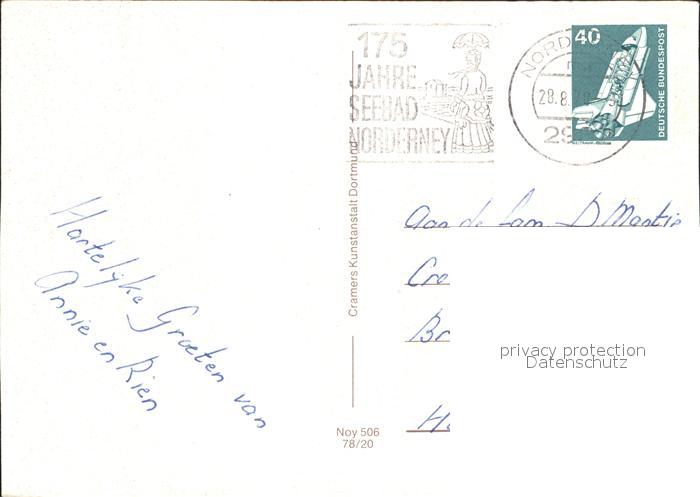 175
JAHRE
SEEBAD
NORDERNEY
NORD
28.8.
29
40
DEUTSCHE BUNDESPOST
Hartelijke Groeten van
Annie en Rien
Cramers Kunstanstalt Dortmund
Noy 506
78/20
Aan de fam D Mastie
Cro
Br
H.
privacy protection
Datenschutz